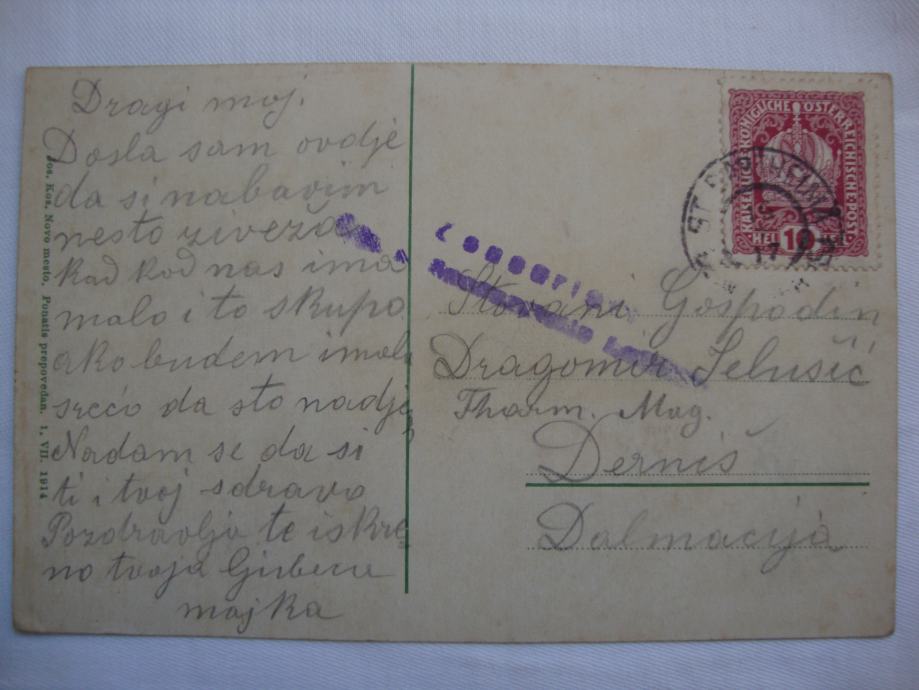 Dragi moj.
Dosla sam ovdje
da si nabavim
nesto
kad kod nas ima
malo i to skupo
ako budem imala
sreću da sto nadjem
Nadam se da si
ti i tvoj zdravo
Pozdravlja te iskre
no tvoja
majka
Jos. Kos, Novo mesto. Ponatis prepovedan. 1. VII. 1914
KAISERLICHE KÖNIGLICHE ÖSTERREICHISCHE POST
HEL 10
ST. BARTHELMÄ
17
Štovani Gospodin
Dragomir
Pharm. Mag.
Derniš
Dalmacija